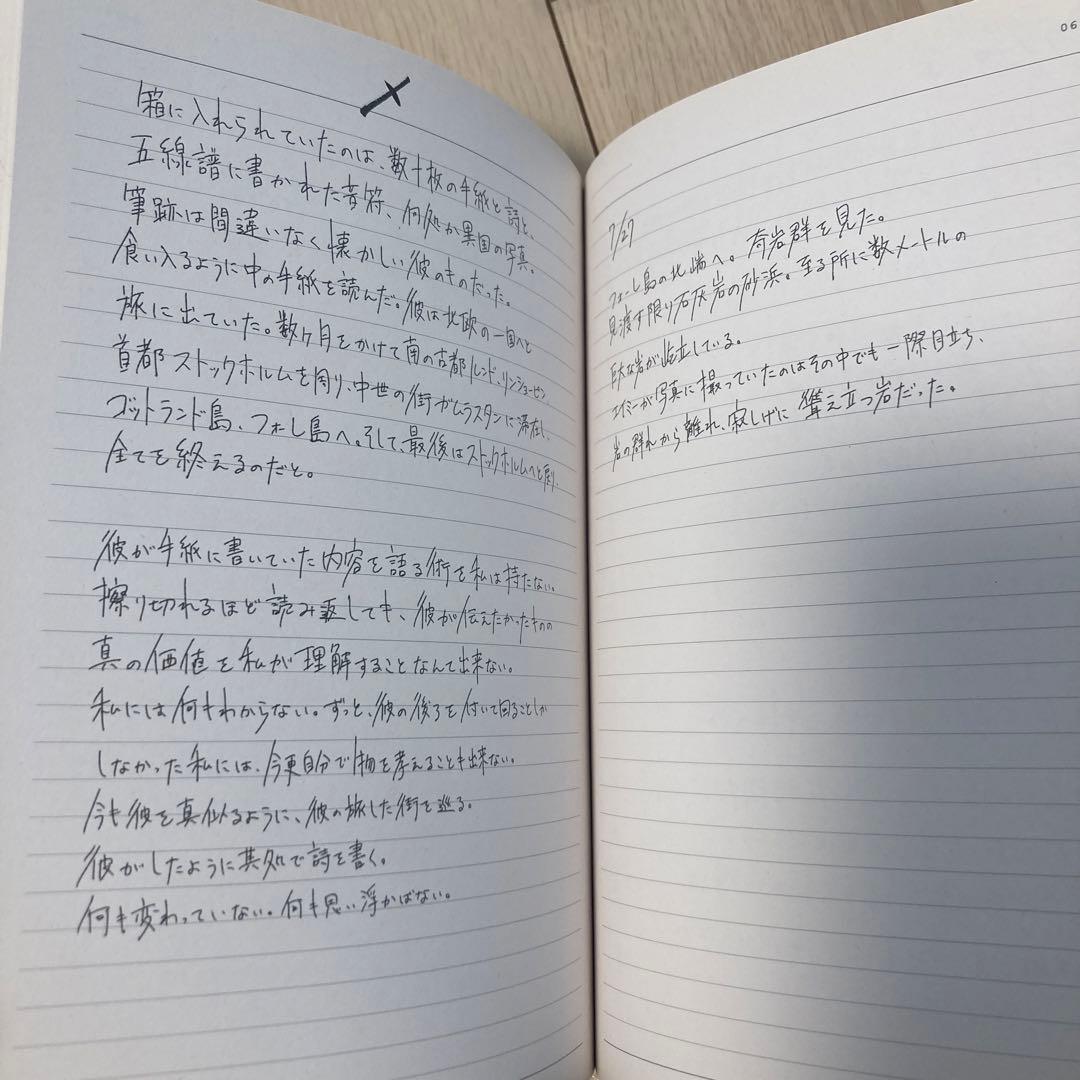 箱に入れられていたのは、数十枚の手紙と詩と、
五線譜に書かれた音符、何処か異国の写真。
筆跡は間違いなく懐かしい彼のものだった。
食い入るように中の手紙を読んだ。彼は北欧の一国へと
旅に出ていた。数ヶ月をかけて南の古都ルンド、リンショーピン、
首都ストックホルムを周り、中世の街ガムラスタンに滞在し、
ゴットランド島、フォーレ島へ。そして、最後はストックホルムへと戻り、
全てを終えるのだと。
彼が手紙に書いていた内容を語る術を私は持たない。
擦り切れるほど読み返しても、彼が伝えたかったものの
真の価値を私が理解することなんて出来ない。
私には何もわからない。ずっと、彼の後ろを付いて回ることしか
しなかった私には、今更自分で物を考えることも出来ない。
今も彼を真似るように、彼の旅した街を巡る。
彼がしたように其処で詩を書く。
何も変わっていない。何も思い浮かばない。
06
7/27
フォーレ島の北端へ。奇岩群を見た。
見渡す限り石灰岩の砂浜。至る所に数メートルの
巨大な岩が屹立している。
エイミーが写真に撮っていたのはその中でも一際目立ち、
岩の群れから離れ、寂しげに聳え立つ岩だった。